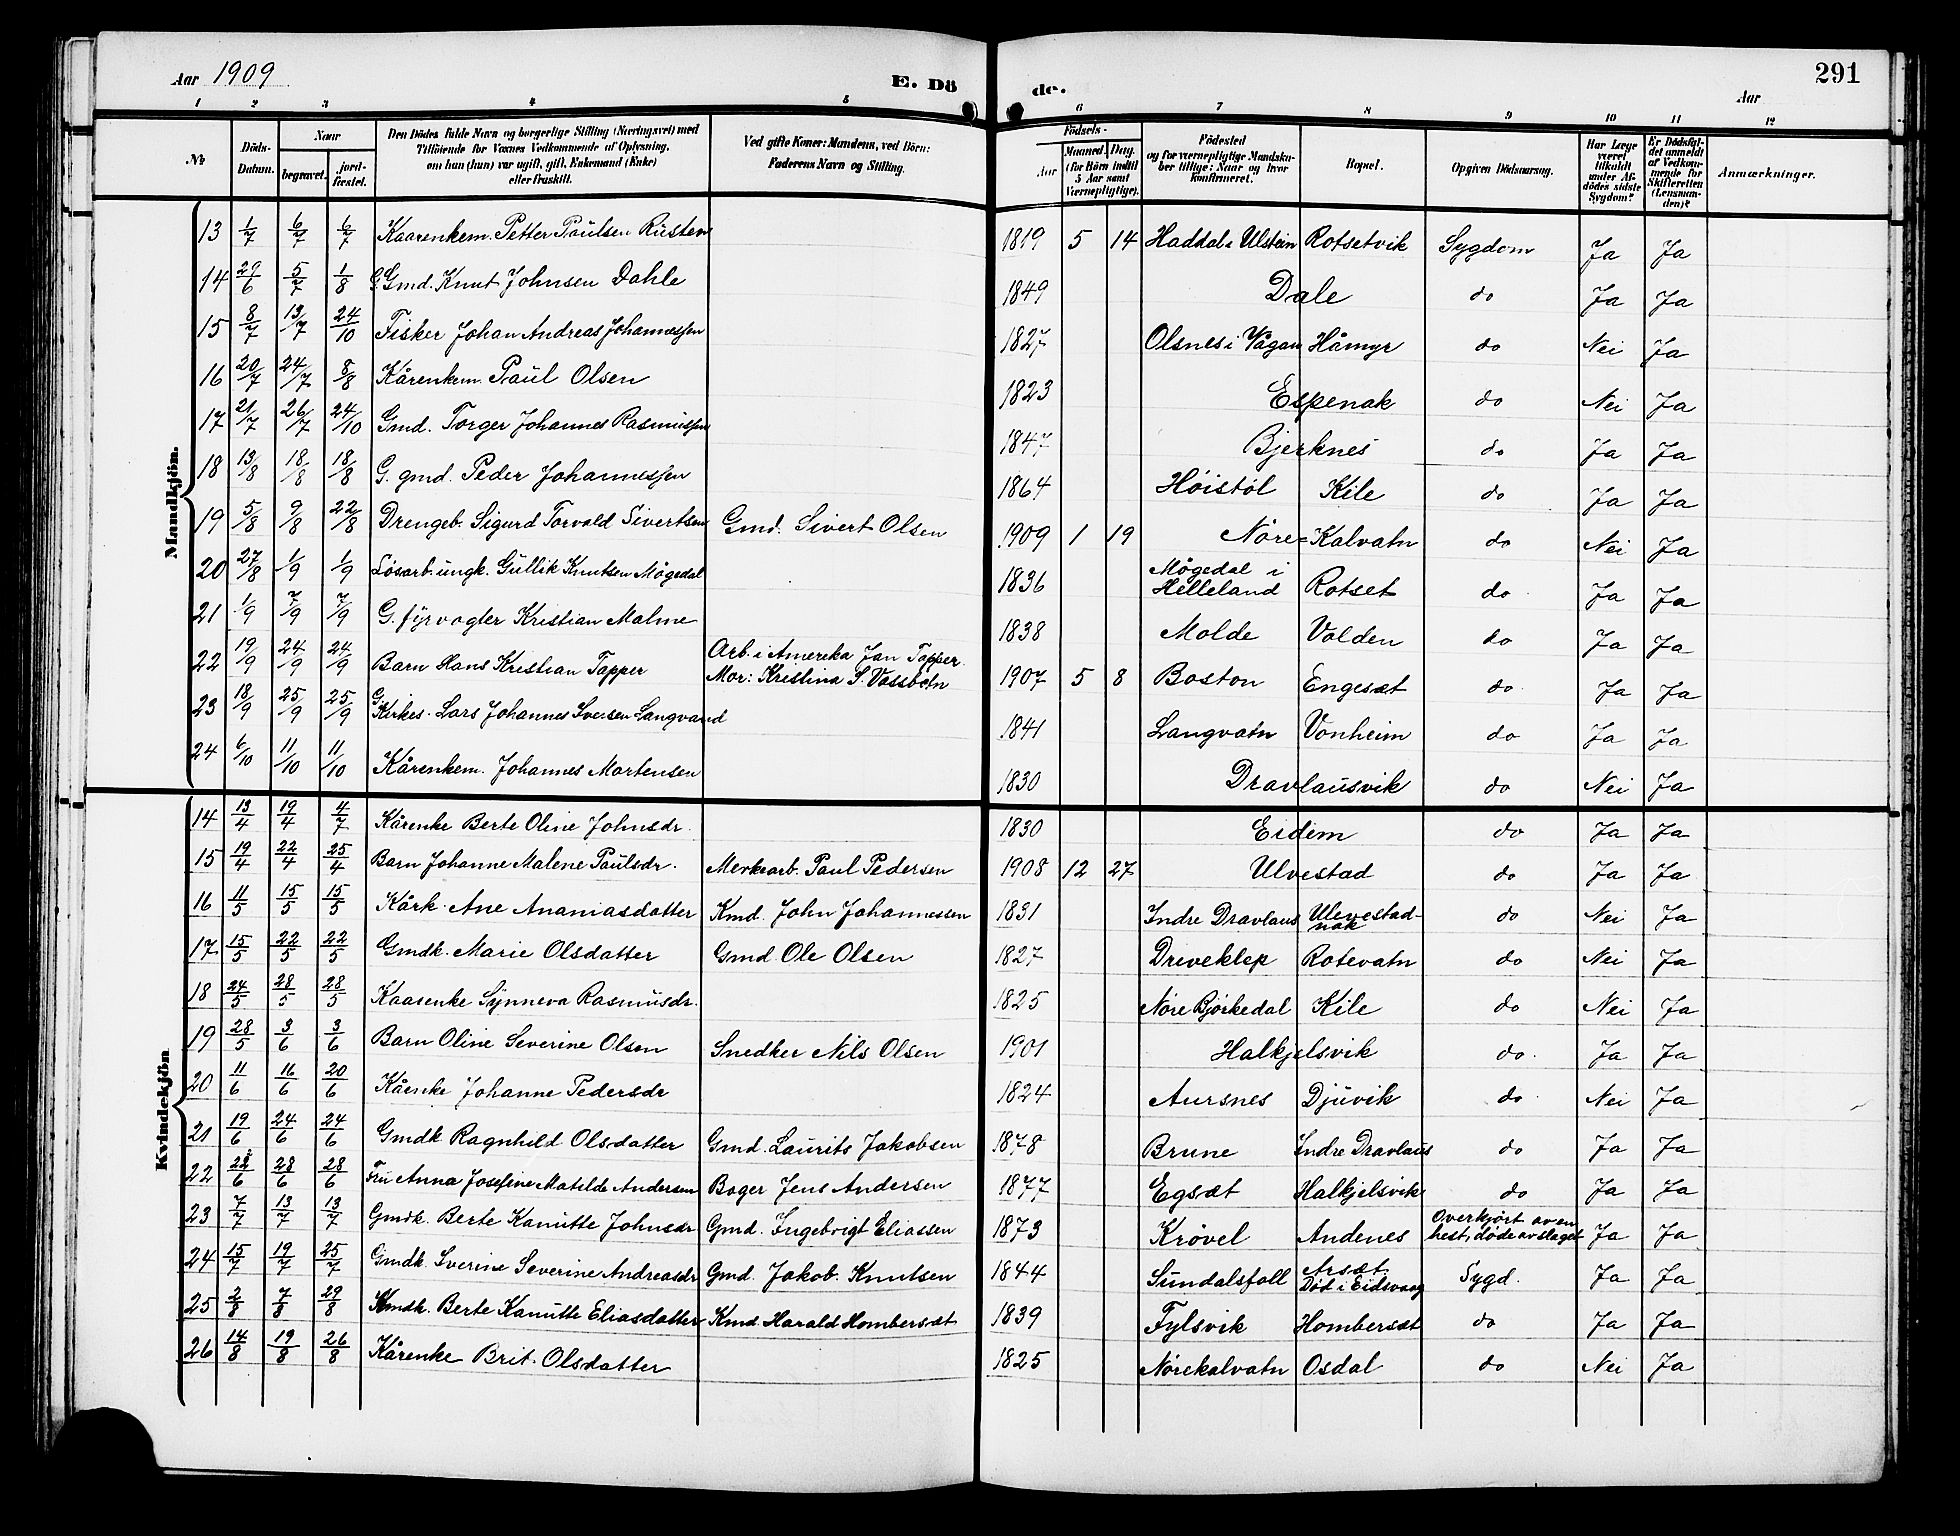 Aar 1909
E. Dö
de.
291
Aar
1 2 3 4 5 6 7 8 9 10 11 12
No
Döds-Datum.
Naar
begravet.
jord-fæstet.
Den Dödes fulde Navn og borgerlige Stilling (Næringsvei) med Tilföiende for Voxnes Vedkommende af Oplysning, om han (hun) var ugift, gift, Enkemand (Enke) eller fraskilt.
Ved gifte Koner: Mandens, ved Börn: Faderens Navn og Stilling.
Födsels-
Aar
Maaned. Dag.
(for Börn indtil 5 Aar samt Værnepligtige).
Födested og for værnepligtige Mandskaber tillige: Naar og hvor konfirmeret.
Bopæl.
Opgiven Dödsaarsag.
Har Læge været tilkaldt under Afdödes sidste Sygdom?
Er Dödsfaldet anmeldt af Vedkommende for Skifteretten (Lensmanden)?
Anmærkninger.
Mandkjön.
13 1/7 6/7 6/7 Kaarenkem. Petter Paulsen Rusten 1819 5 14 Haddal i Ulstein Rotsetvik Sygdom Ja Ja
14 29/6 5/7 1/8 G. Gmd. Knut Johnsen Dahle 1849 Dale do Ja Ja
15 8/7 13/7 24/10 Fisker Johan Andreas Johannessen 1827 Olsnes i Vågan Håmyr do Nei Ja
16 20/7 24/7 8/8 Kårenkem. Paul Olsen 1823 Espenak do Nei Ja
17 21/7 26/7 24/10 Gmd. Torger Johannes Rasmussen 1847 Bjerknes do Ja Ja
18 13/8 18/8 18/8 G. gmd. Peder Johannessen 1864 Høistöl Kile do Ja Ja
19 5/8 9/8 22/8 Drengeb. Sigurd Torvald Sivertsen Gmd. Sivert Olsen 1909 1 19 Nöre=Kalvatn do Nei Ja
20 27/8 1/9 1/9 Lösarb. ungk. Gullik Knutsen Mögedal 1836 Mögedal i Helleland Rotset do Ja Ja
21 1/9 7/9 7/9 G. fyrvogter Kristian Malme 1838 Molde Volden do Ja Ja
22 19/9 24/9 24/9 Barn Hans Kristian Tapper Arb. i Amerika Jan Tapper. Mor: Kristina S. Vassbotn 1907 5 8 Boston Engesæt do Ja Ja
23 18/9 25/9 25/9 G. Kirkes. Lars Johannes Iversen Langvand 1841 Langvatn Vonheim do Ja Ja
24 6/10 11/10 11/10 Kårenkem. Johannes Mortensen 1830 Dravlausvik do Nei Ja
Kvindekjön
14 13/4 19/4 4/7 Kårenke Berte Oline Johnsdr. 1830 Eidem do Ja Ja
15 19/4 22/4 25/4 Barn Johanne Malene Paulsdr. Merkearb. Paul Pedersen 1908 12 27 Ulvestad do Ja Ja
16 11/5 15/5 15/5 Kårk. Ane Ananiasdatter Kmd. John Johannessen 1831 Indre Dravlaus Ulevestad-nak do Nei Ja
17 15/5 22/5 22/5 Gmdk. Marie Olsdatter Gmd. Ole Olsen 1827 Driveklep Rotevatn do Nei Ja
18 24/5 28/5 28/5 Kaarenke Synneva Rasmusdr. 1825 Nöre Björkedal Kile do Nei Ja
19 28/5 3/6 3/6 Barn Oline Severine Olsen Snedker Nils Olsen 1901 Halkjelsvik do Ja Ja
20 11/6 16/6 20/6 Kåenke Johanne Pedersdr 1824 Aursnes Djuvik do Nei Ja
21 19/6 24/6 24/6 Gmdk Ragnhild Olsdatter Gmd. Laurits Jakobsen 1878 Brune Indre Dravlaus do Ja Ja
22 22/6 28/6 28/6 Fru Anna Josefine Matilde Andersen Bager Jens Andersen 1877 Egsæt Halkjelsvik do Ja Ja
23 7/7 13/7 13/7 Gmdk. Berte Kanutte Johnsdr Gmd. Ingebrigt Eliassen 1873 Krövel Andenes Overkjört av en hest, döde av slaget Ja Ja
24 15/7 19/7 25/7 Gmdk. Iverine Severine Andreasdr Gmd. Jakob Knutsen 1844 Sundalsfoll Arsæt. Död i Eidsvaag Sygd. Ja Ja
25 2/8 7/8 29/8 Kmdk. Berte Kanutte Eliasdatter Kmd. Harald Hombersæt 1839 Fylsvik Hombersæt do Ja Ja
26 14/8 19/8 26/8 Kårenke Brit. Olsdatter 1825 Nörekalvatn Osdal do Nei Ja